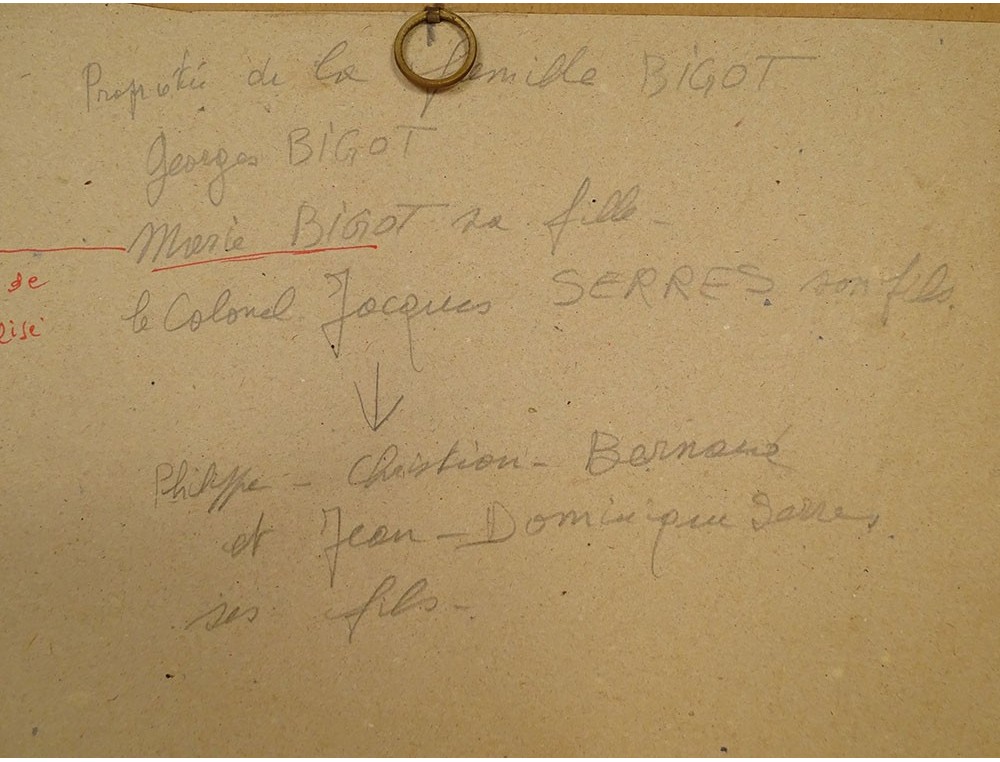 Propriété de la famille BIGOT
Georges BIGOT
Marie BIGOT sa fille -
le Colonel Jacques SERRES son fils.
de
lisé
Philippe - Christian - Bernard
et Jean-Dominique Serres,
ses fils -